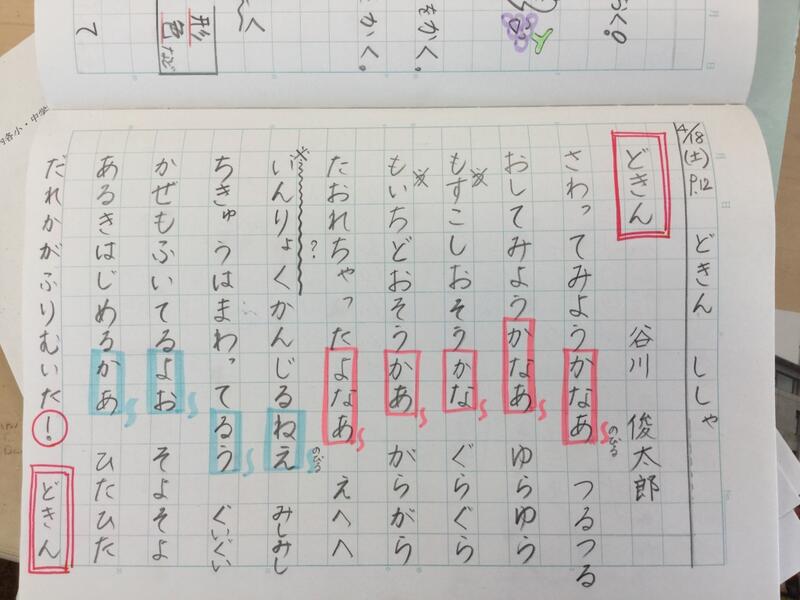 4/18(土) P.12 どきん ししゃ
どきん
谷川 俊太郎
さわってみようかなあ つるつる
のびる
おしてみようかなあ ゆらゆら
もすこしおそうかな ぐらぐら
※
もいちどおそうかあ がらがら
※
たおれちゃったよなあ えへへ
?
いんりょくかんじるねえ みしみし
※
のびる
ちきゅうはまわってるう ぐいぐい
かぜもふいてるよお そよそよ
あるきはじめるかあ ひたひた
だれかがふりむいた! どきん
らく。
をかく。
とかく。
く
形
色 など
て
各小・中学